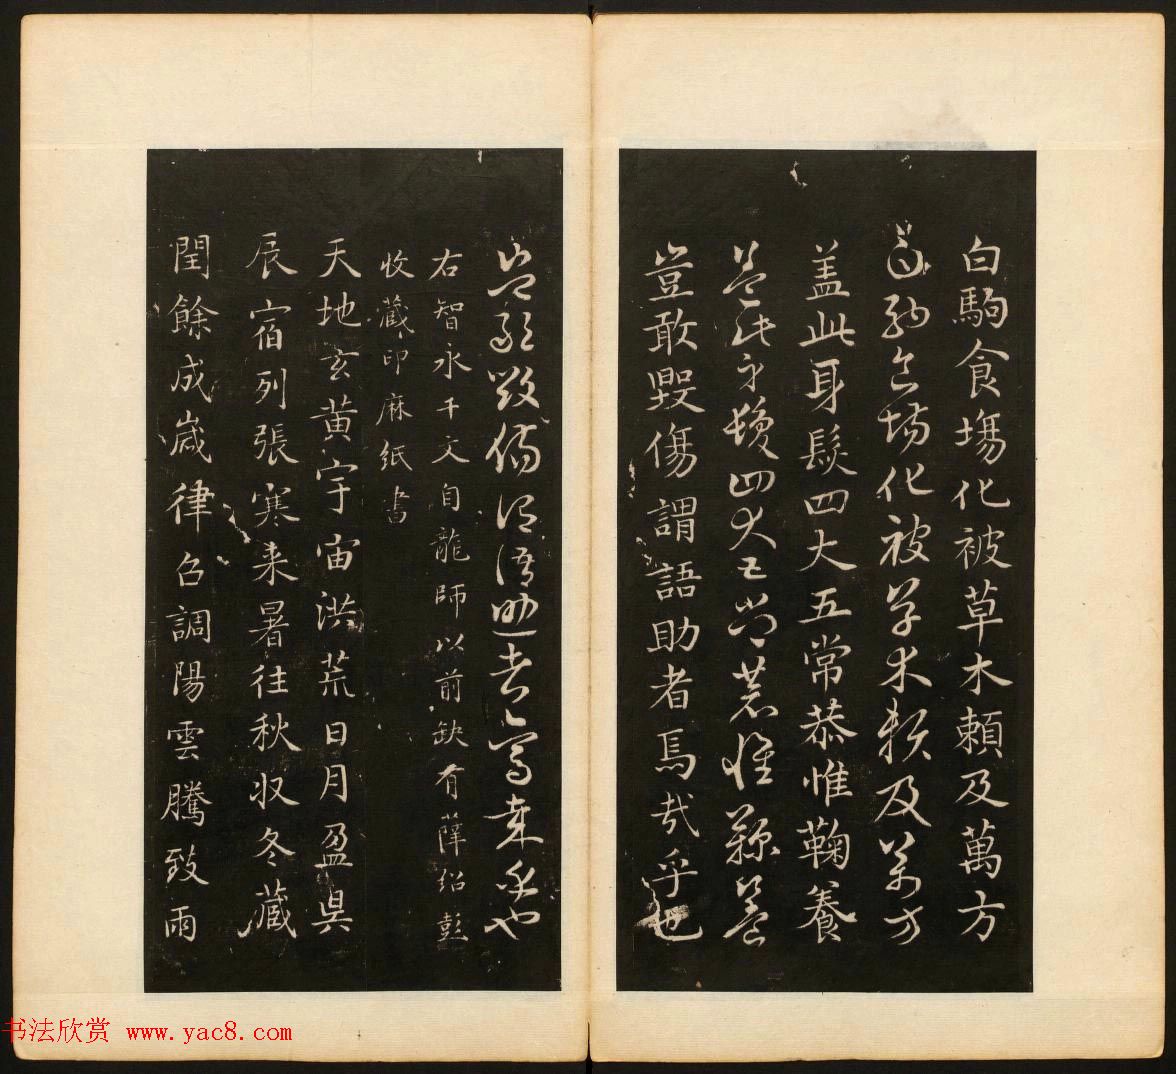 白駒食塲化被草木賴及萬方
白駒食場化被草木賴及萬方
盖此身髮四大五常恭惟鞠養
盖此身髮四大五常恭惟鞠養
豈敢毀傷謂語助者焉哉乎也
豈敢毀傷謂語助者焉哉乎也
右智永千文自龍師以前缺有薛紹彭
收藏印麻紙書
天地玄黃宇宙洪荒日月盈昃
辰宿列張寒来暑往秋収冬藏
閏餘成歲律召調陽雲騰致雨
书法欣赏 www.yac8.com